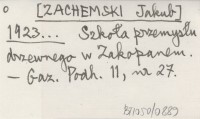 o [ZACHEMSKI Jakub]
1923... Szkoła przemysłu
drzewnego w Zakopanem.
— Gaz. Podh. 11, nr 27.